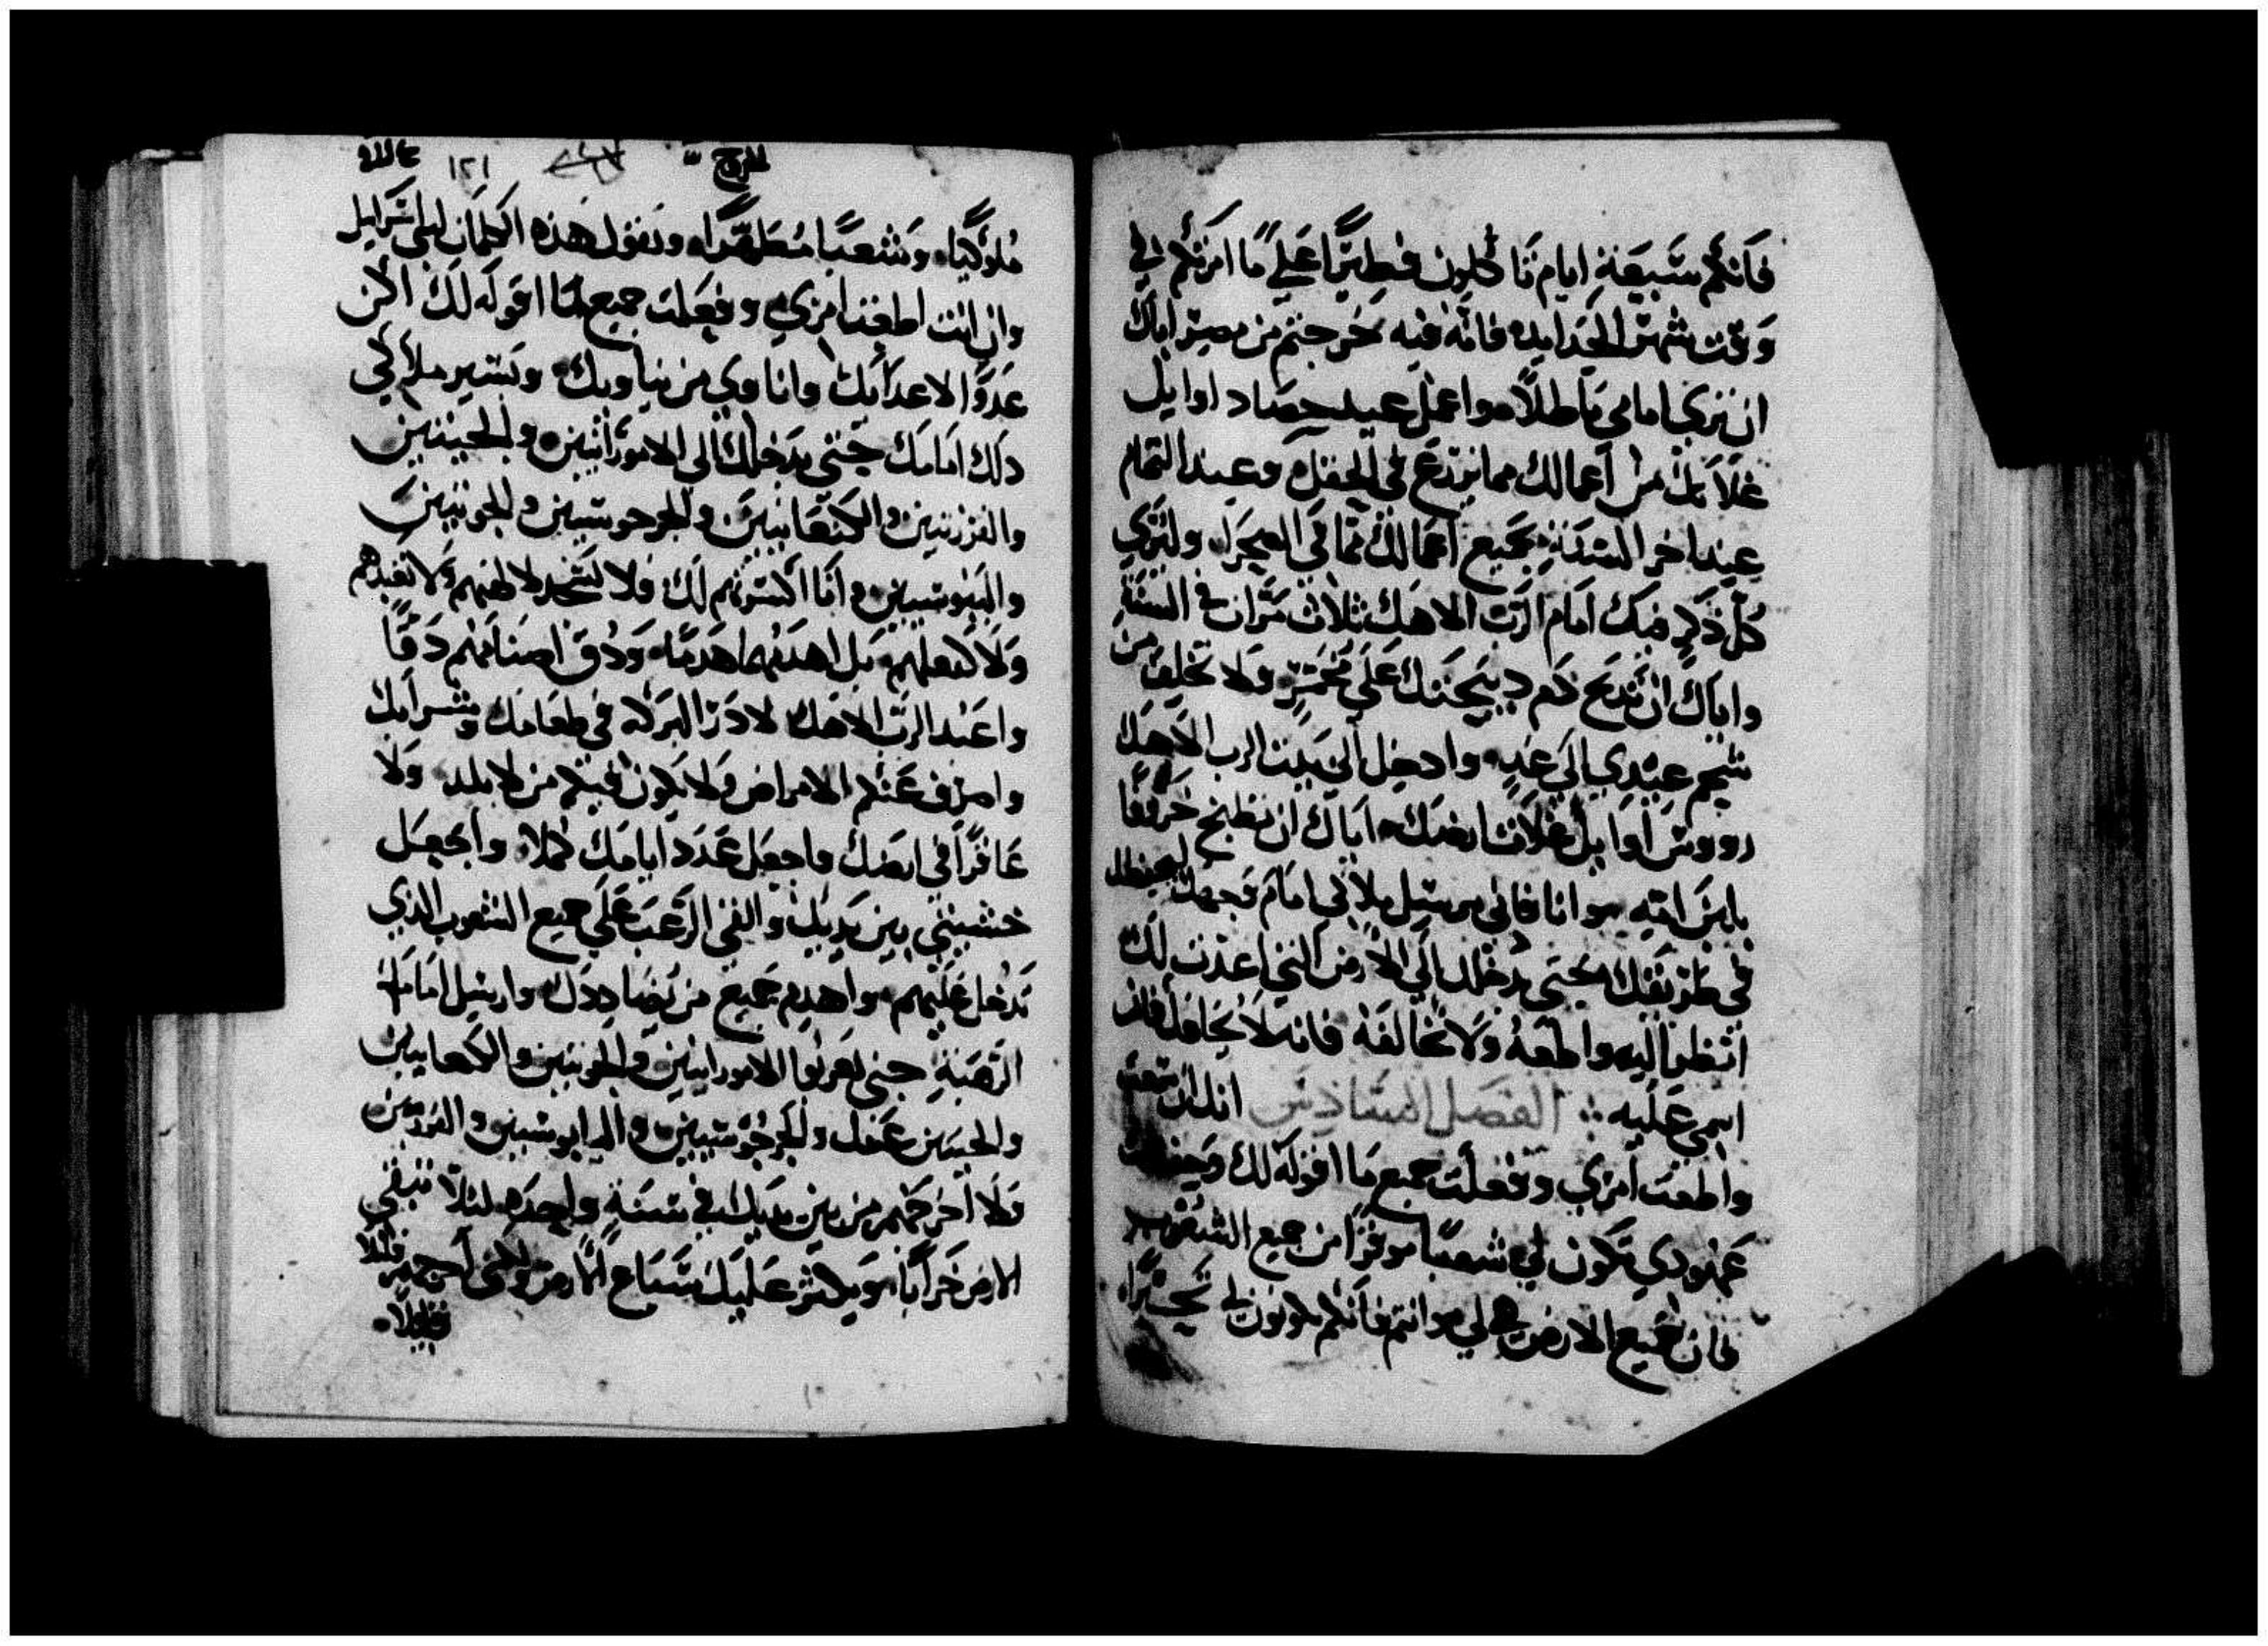 فانكم سبعة ايام تاكلون فطيرًا علي ما امرتكم في
وقت شهر الجدايد فانه فيه خرجتم من مصر اياك
ان تري امامي باطلًا واعمل عيد حصاد اوايل
غلاتك من اعمالك مما تزرع في الحقل وعيد التمام
عند اخر السنة بجميع اعمالك مما في الصحرا وليتري
كل ذكر منك امام الرب الاهك ثلاث مرات في السنة
واياك ان تذبح دم ذبيحتك علي مختمر ولا تخلف من
شحم عيدي الي غدٍ وادخل الي بيت الرب الاهك
رووس اوايل غلات ارضك اياك ان تطبخ خروفًا
بلبن امه وانا فاني مرسل ملاكي امام وجهك ليحفظك
في طريقك حتي يدخلك الي الارض التي اعددت لك
انظر اليه واطعه ولا تخالفه فانه لا يحافك فان
اسمي عليه الفصل السادس انك ان سمعت
واطعت امري وفعلت جميع ما اقوله لك وحفظت
عهودي تكون لي شعبًا موفرًا من جميع الشعوب
فان جميع الارض هي لي وانتم فانكم تكونون لي تحيرًا
الخروج ١٢١
ملوكيًا وشعبًا مطهرًا وتقول هذه الكلمات لبني اسرايل
وان انت اطعت امري وفعلت جميع ما اقوله لك اكن
عدوًا لاعدائك واناوي من يناويك ويسير ملاكي
ذلك امامك حتي يدخلك الي الامورانيين والحيتيين
والفرزيين والكنعانيين والجرجوسيين والحويين
واليبوسيين وانا اكسرهم لك فلا تسجد لالهتهم ولا تعبدهم
ولا كفعلهم بل اهدمها هدمًا ودق اصنامهم دقًا
واعبد الرب الاهك لادر البركة في طعامك وشرابك
واصرف عنكم الامراض ولا يكون فيكم من لا يلد ولا
عاقرًا في ارضك واجعل عدد ايامك كملا واجعل
خشيتي بين يديك والقي الرعب علي جميع الشعوب الذي
تدخل عليهم واهدم جميع من يضاددك وارسل امامك
الرهبة حتي يهربوا الامورانيين والحويين والكنعانيين
والحيتين عنك والجرجوسيين واليابوسيين والفرزيين
ولا اخرجهم من بين يديك في سنة واحدة لئلا تبقي
الارض خرابًا ويكثر عليك سباع الارض لكني اخرجهم قليلا
قليلًا